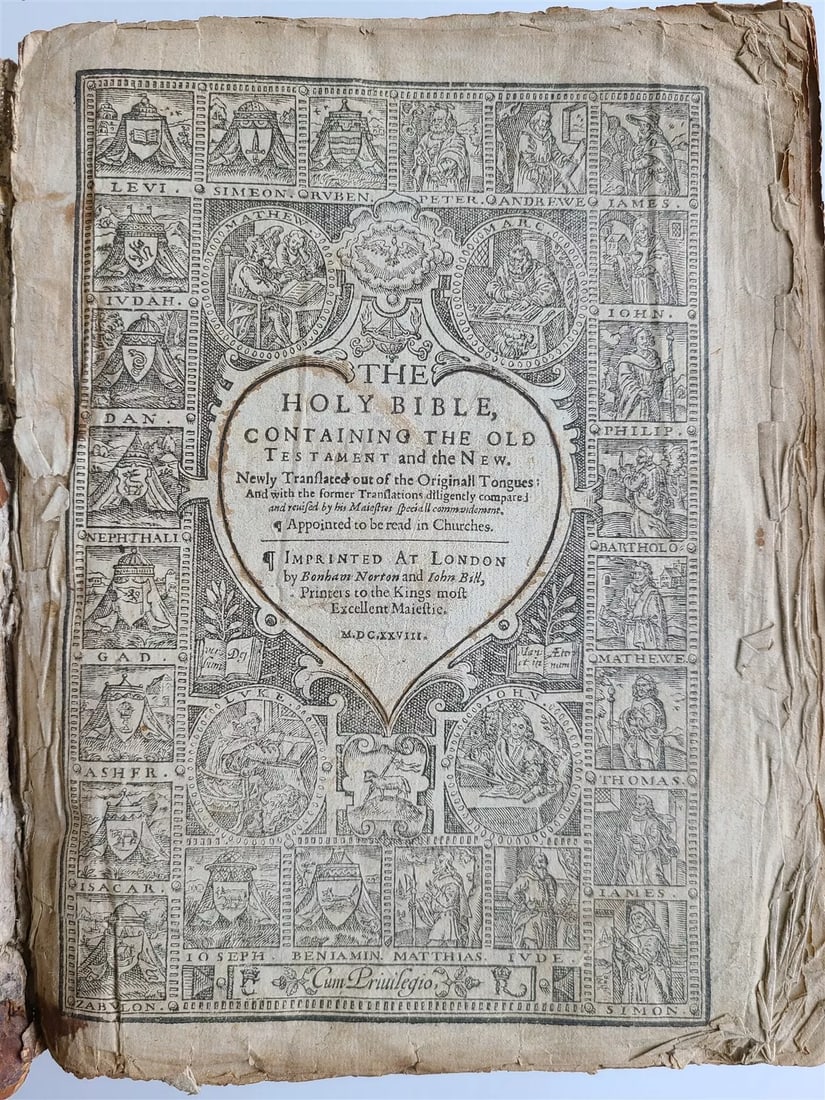 LEVI. SIMEON. RVBEN. PETER. ANDREWE IAMES.
MATHEW MARC
IVDAH. IOHN.
DAN. PHILIP.
THE
HOLY BIBLE,
CONTAINING THE OLD
TESTAMENT and the NEW.
Newly Tranſlated out of the Originall Tongues:
And with the former Tranſlations diligently compared
and reuiſed by his Maieſties ſpeciall commandement.
¶ Appointed to be read in Churches.
¶ IMPRINTED AT LONDON
by Bonham Norton and Iohn Bill,
Printers to the Kings moſt
Excellent Maieſtie.
M.DC.XXVIII.
NEPHTHALI BARTHOLO
GAD. MATHEWE
Ver- Dei
bum
Man- Æter
et in num
LVKE IOHN
ASHER. THOMAS.
ISACAR. IAMES.
IOSEPH. BENIAMIN. MATTHIAS. IVDE.
ZABVLON. SIMON.
F Cum Priuilegio. R